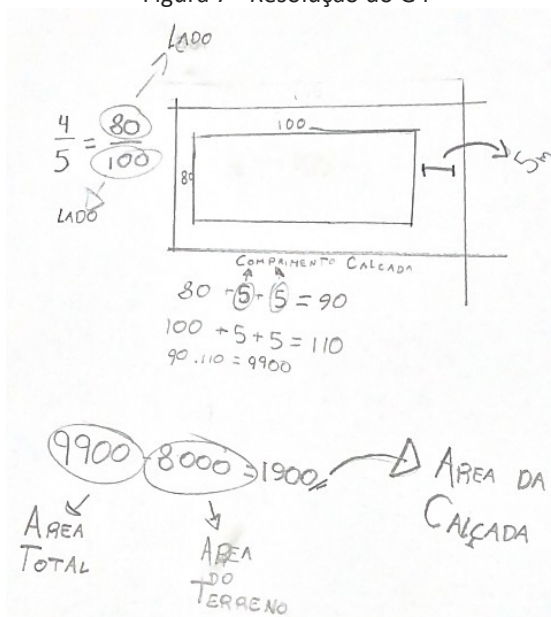 Figura 7 - Resolução do G4
LADO
4/5 = 80/100
LADO
100
80
5m
COMPRIMENTO CALÇADA
80 + 5 + 5 = 90
100 + 5 + 5 = 110
90 . 110 = 9900
9900 - 8000 = 1900
AREA DA
CALÇADA
AREA
TOTAL
AREA
DO
TERRENO